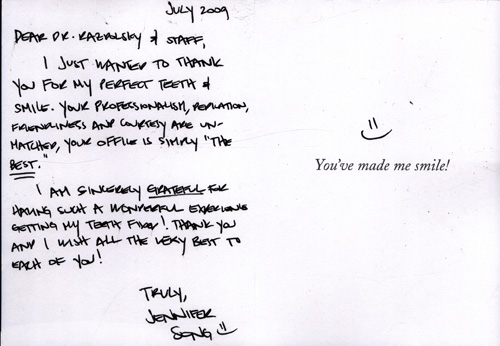 JULY 2009
DEAR DR. RAZDOLSKY & STAFF,
I JUST WANTED TO THANK
YOU FOR MY PERFECT TEETH &
SMILE. YOUR PROFESSIONALISM, REPUTATION,
FRIENDLINESS AND COURTESY ARE UN-
MATCHED, YOUR OFFICE IS SIMPLY "THE
BEST."
I AM SINCERELY GRATEFUL FOR
HAVING SUCH A WONDERFUL EXPERIENCE
GETTING MY TEETH FIXED! THANK YOU
AND I WISH ALL THE VERY BEST TO
EACH OF YOU!
TRULY,
JENNIFER
SONG
You've made me smile!